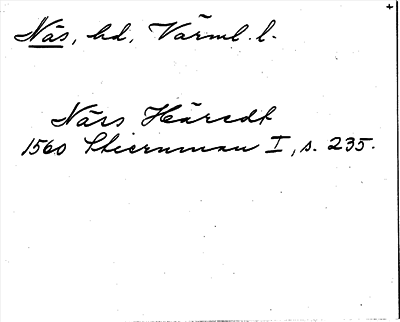 Näs, hd, Värml. l.
Närs Häredt
1560 Stiernman I, s. 235.